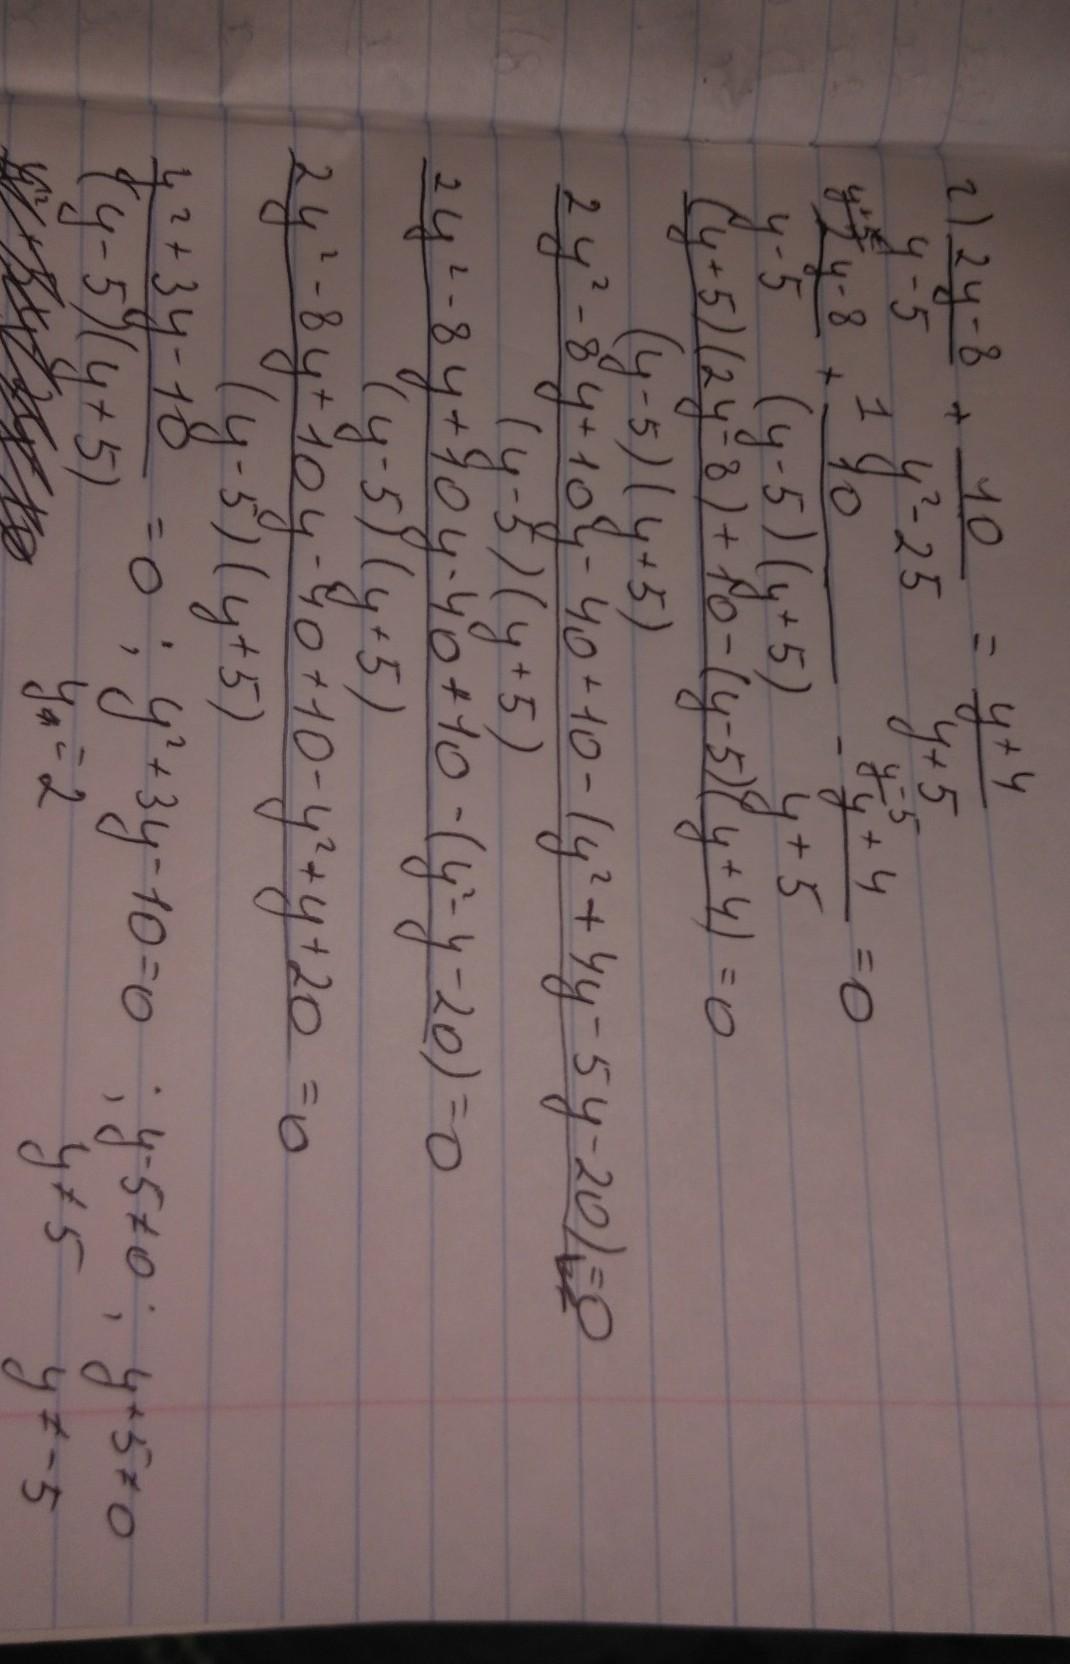 г) 2y-8/y-5 + 10/y²-25 = y+4/y+5
y+5 2y-8/y-5 + 1 10/(y-5)(y+5) - y-5 y+4/y+5 = 0
(y+5)(2y-8)+10-(y-5)(y+4)/(y-5)(y+5) = 0
2y²-8y+10y-40+10-(y²+4y-5y-20)/(y-5)(y+5) = 0
2y²-8y+10y-40+10-(y²-y-20)/(y-5)(y+5) = 0
2y²-8y+10y-40+10-y²+y+20/(y-5)(y+5) = 0
y²+3y-10/(y-5)(y+5) = 0; y²+3y-10=0; y-5≠0; y+5≠0
y=2 y≠5 y≠-5